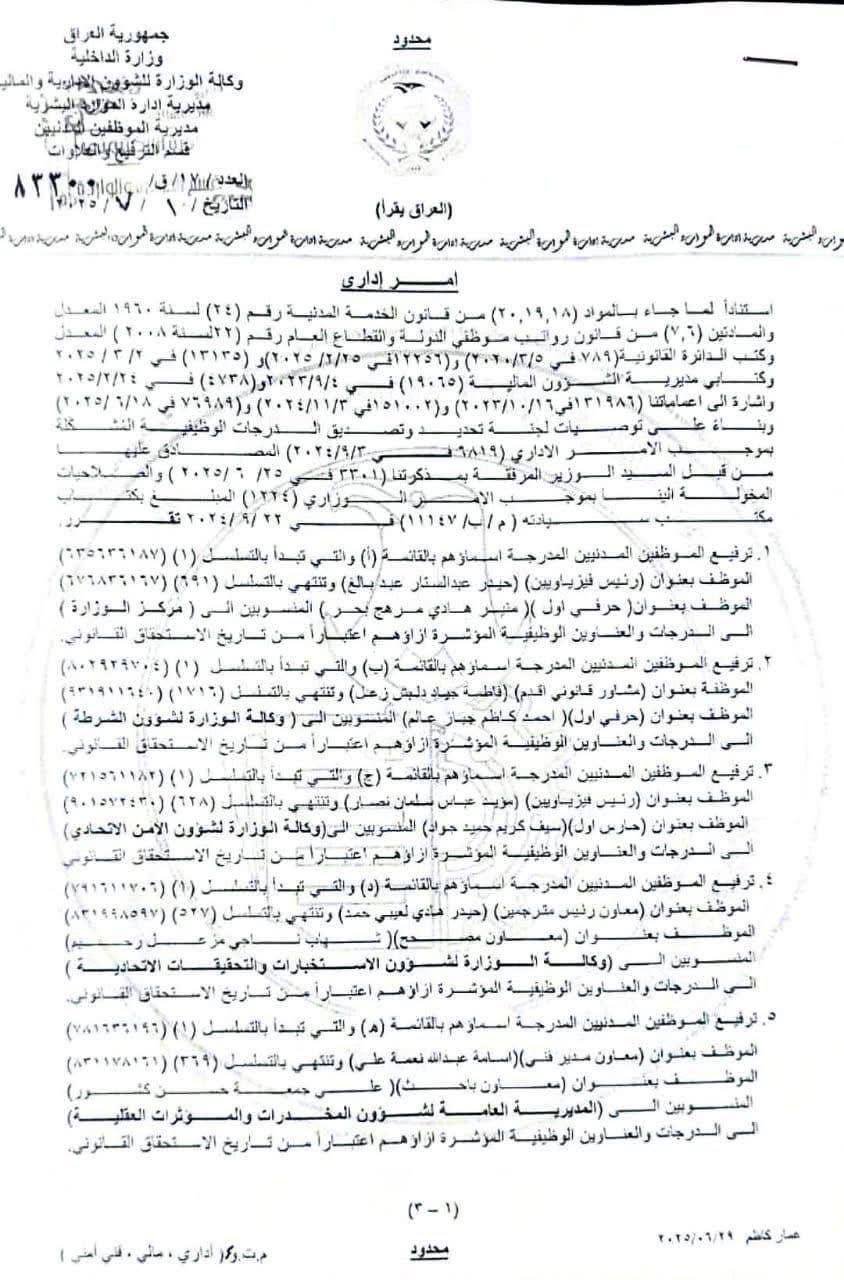 جمهورية العراق
وزارة الداخلية
وكالة الوزارة للشؤون الادارية والمالية
مديرية إدارة الموارد البشرية
مديرية الموظفين المدنيين
قسم الترفيع والعلاوات
العدد / ١٧/ق/ ٨٣٣٠٠
التاريخ / ١٠ / ٧ / ٢٠٢٥
محدود
(العراق يقرأ)
مديرية ادارة الموارد البشرية مديرية ادارة الموارد البشرية مديرية ادارة الموارد البشرية مديرية ادارة الموارد البشرية
امـــر إداري
استناداً لما جاء بالمواد (١٨,١٩,٢٠) من قانون الخدمة المدنية رقم (٢٤) لسنة ١٩٦٠ المعدل
والمادتين (٧,٦) من قانون رواتب موظفي الدولة والقطاع العام رقم (٢٢لسنة ٢٠٠٨ ) المعدل
وكتب الدائرة القانونية(٧٨٩ في ٢٠٢٠/٣/٥) و(١٢٢٥٦في ٢٠٢٥/٢/٢٥)و (١٣١٣٥) في ٢ / ٣ / ٢٠٢٥
وكتابي مديرية الشؤون المالية (١٩٠٦٥) في ٢٠٢٣/٩/٤و(٤٧٣٨) في ٢٠٢٥/٢/٢٤
واشارة الى اعماماتنا (١٣١٩٨٦في٢٠٢٣/١٠/١٦) و(١٥١٠٠٢في ٢٠٢٤/١١/٣) و(٧٦٩٨٩ في ٢٠٢٥/٦/١٨)
وبناءً على توصيات لجنة تحديد وتصديق الدرجات الوظيفية المشكلة
بموجب الامر الاداري (٦٨١٩ في ٢٠٢٤/٩/٣) المصادق عليها
من قبل السيد الوزير المرفقة بمذكرتنا (٣٣٠١ في ٢٥/ ٦ /٢٠٢٥ ) والصلاحيات
المخولة الينا بموجب الامر الوزاري (١٢٢٤) المبلغ بكتاب
مكتب سيادته (م /ب/ ١١١٤٧) في ٢٢ /٩/ ٢٠٢٤ تقرر.
١. ترفيع الموظفين المدنيين المدرجة اسماؤهم بالقائمة (أ) والتي تبدأ بالتسلسل (١) (٦٣٥٦٣٦١٨٧)
الموظف بعنوان (رئيس فيزياويين) (حيدر عبدالستار عبد بالغ) وتنتهي بالتسلسل (٦٩١) (٦٧٦٨٣٦١٦٧)
الموظف بعنوان( حرفي اول )( منير هادي مرهج بحر ) المنسوبين الى ( مركز الوزارة )
الى الدرجات والعناوين الوظيفية المؤشرة ازاؤهم اعتباراً من تاريخ الاستحقاق القانوني.
٢. ترفيع الموظفين المدنيين المدرجة اسماؤهم بالقائمة (ب) والتي تبدأ بالتسلسل (١) (٨٠٢٩٢٩٧٠٤)
الموظفة بعنوان (مشاور قانوني اقدم) (فاطمة جياد دلبش زعل) وتنتهي بالتسلسل (١٧١٦) (٩٣١٩١١٦٤٠)
الموظف بعنوان (حرفي اول)( احمد كاظم جبار عالم) المنسوبين الى ( وكالة الوزارة لشؤون الشرطة )
الى الدرجات والعناوين الوظيفية المؤشرة ازاؤهم اعتباراً من تاريخ الاستحقاق القانوني.
٣. ترفيع الموظفين المدنيين المدرجة اسماؤهم بالقائمة (ج) والتي تبدأ بالتسلسل (١) (٧٢١٥٦١١٨٢)
الموظف بعنوان (رئيس فيزياويين) (مؤيد عباس سلمان نصار) وتنتهي بالتسلسل (٦٢٨) (٩٠١٥٧٢٤٣٠)
الموظف بعنوان (حارس اول)(سيف كريم حميد جواد) المنسوبين الى(وكالة الوزارة لشؤون الأمن الاتحادي)
الى الدرجات والعناوين الوظيفية المؤشرة ازاؤهم اعتباراً من تاريخ الاستحقاق القانوني
٤. ترفيع الموظفين المدنيين المدرجة اسماؤهم بالقائمة (د) والتي تبدأ بالتسلسل (١) (٧٩١٦١١٧٠٦)
الموظف بعنوان (معاون رئيس مترجمين) (حيدر هادي لعيبي حمد) وتنتهي بالتسلسل (٥٢٧) (٨٣١٩٩٨٥٩٧)
الموظف بعنوان (معاون مصحح)( شهاب ناجي مزعل رحيم)
المنسوبين الى (وكالة الوزارة لشؤون الاستخبارات والتحقيقات الاتحادية )
الى الدرجات والعناوين الوظيفية المؤشرة ازاؤهم اعتباراً من تاريخ الاستحقاق القانوني.
٥. ترفيع الموظفين المدنيين المدرجة اسماؤهم بالقائمة (ه) والتي تبدأ بالتسلسل (١) (٧٨١٦٣٦١٩٦)
الموظف بعنوان (معاون مدير فني)(اسامة عبدالله نعمة علي) وتنتهي بالتسلسل (٣٦٩) (٨٣١١٧٨١٦١)
الموظف بعنوان (معاون باحث)( علي جمعة حسن كشور)
المنسوبين الى (المديرية العامة لشؤون المخدرات والمؤثرات العقلية)
الى الدرجات والعناوين الوظيفية المؤشرة ازاؤهم اعتباراً من تاريخ الاستحقاق القانوني.
(١ - ٣)
عمار كاظم ٢٠٢٥/٠٦/٢٩
محدود
م.ت.و( أداري ، مالي ، فني أمني )